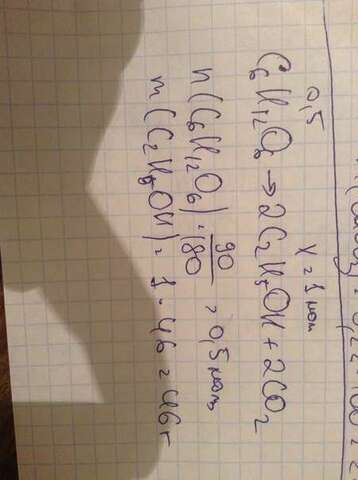 0,5 x = 1 моль
C6H12O6 → 2C2H5OH + 2CO2
n(C6H12O6) = 90/180 = 0,5 моль
m(C2H5OH) = 1 · 46 = 46 г